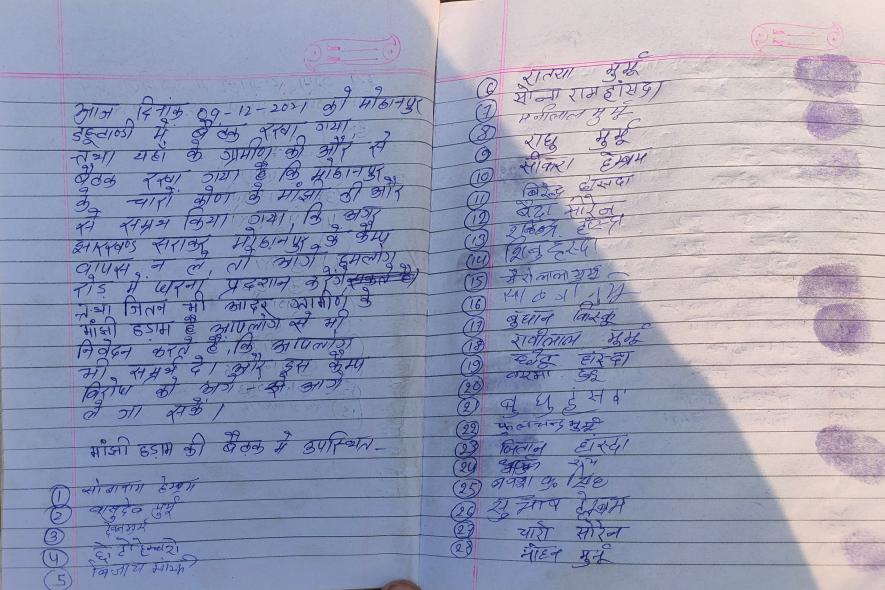 आज दिनांक 09-12-2021 को मोहानपुर
डहूटाण्डी में बैठक रखा गया
तथा यहां के ग्रामीण की ओर से
बैठक रखा गया है कि मोहानपुर
के चारों कोण के मांझी की ओर
से सम्रथ किया गया, कि अगर
झारखण्ड सराकर मोहानपुर के कैम्प
वापस न ले, तो आगे हमलोग
रोड़ में धारना प्रदशान करेंगे
तथा जितने भी आदर ग्रामीण के
मांझी हड़ाम है आपलोग से भी
निवेदन करते है, कि आपलोग
भी सम्रथ दे। और इस कैम्प
विरोध को आगे से आगे
ले जा सकें।
मांझी हड़ाम की बैठक मे उपस्थित-
① हेम्ब्रम
② वासुदेव मुर्मू
③
④
⑤ विजाय मांझी
⑥ रातया मुर्मू
⑦ सोना राम हांसदा
⑧ मनीलाल मुर्मू
⑨ राधु मुर्मू
⑩ सीकरा हेम्ब्रम
⑪ बिरेन्द्र हांसदा
⑫ बैदा सोरेन
⑬ हांसदा
⑭ शिबु हांसदा
⑮ मुर्मू
⑯
⑰ बुधान किस्कू
⑱ रावीलाल मुर्मू
⑲ छोटू हांसदा
⑳ करमा टुडू
㉑ बुधु
㉒ फुलचन्द मुर्मू
㉓ जितान हांसदा
㉔
㉕ सिंह
㉖ सुभाष हेम्ब्रम
㉗ चारो सोरेन
㉘ मोहन मुर्मू